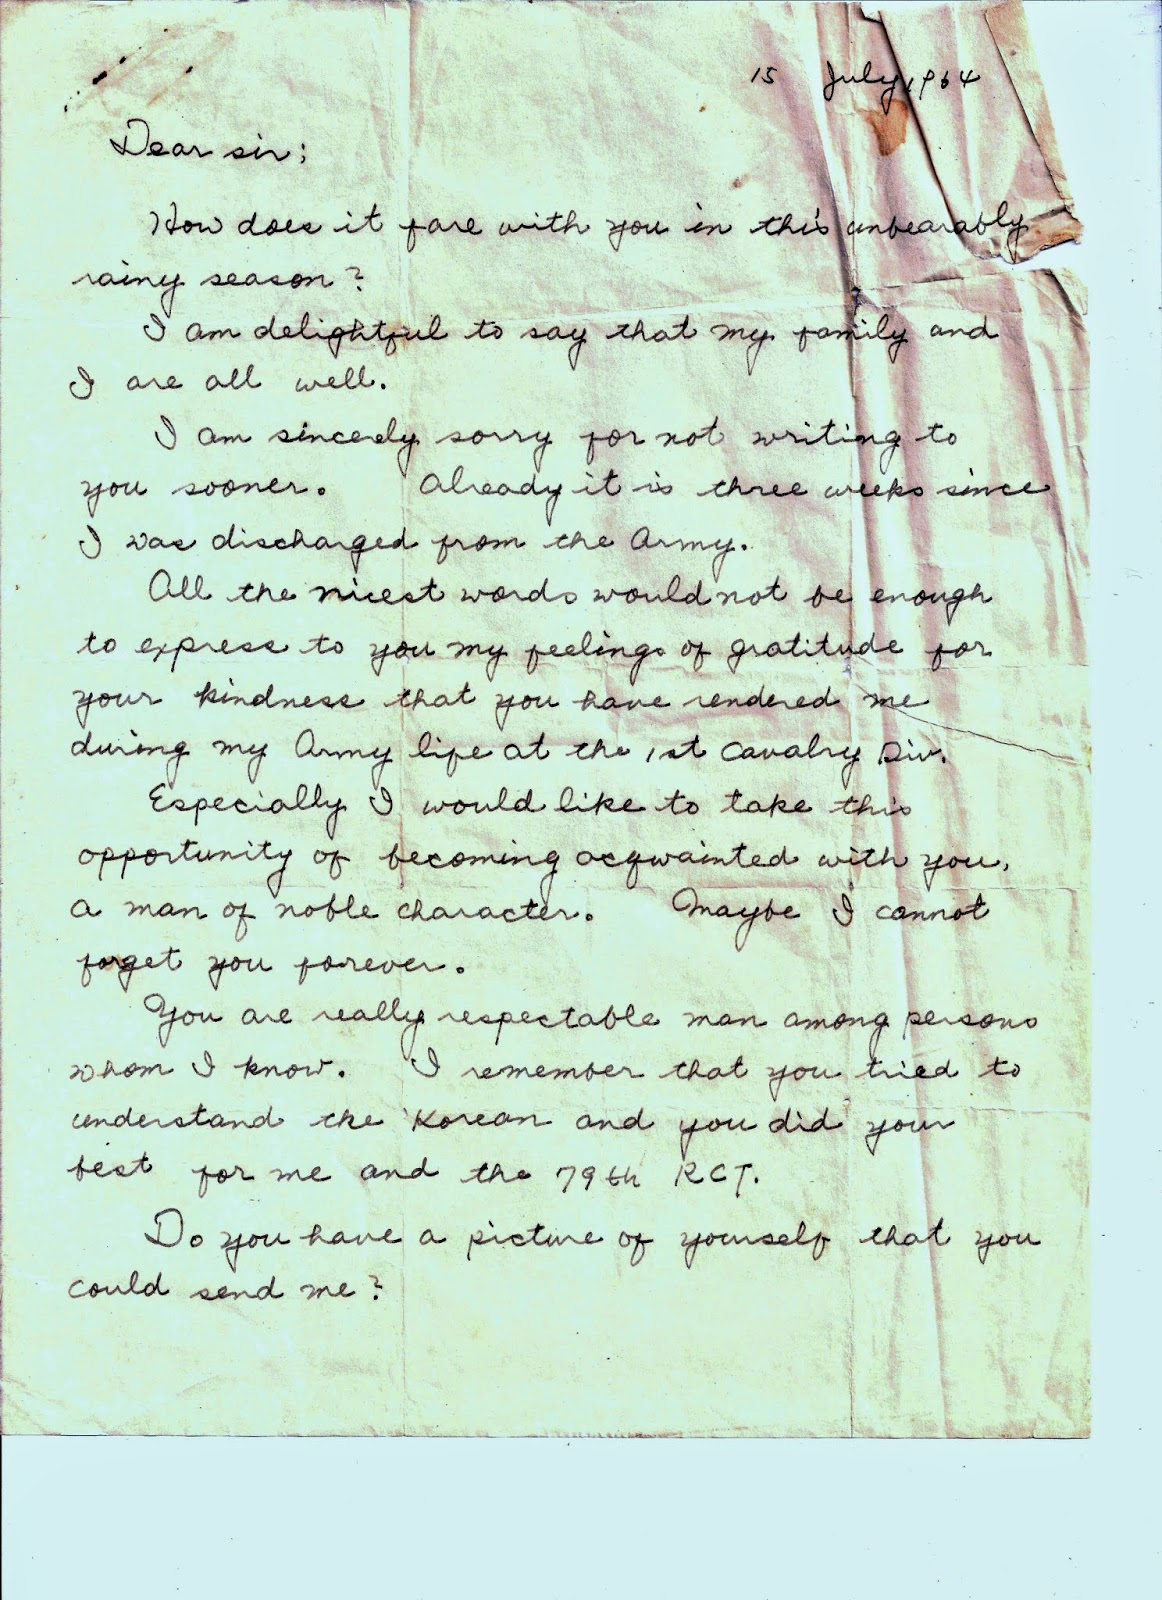 15 July, 1964
Dear sir;
How does it fare with you in this unbearably
rainy season?
I am delightful to say that my family and
I are all well.
I am sincerely sorry for not writing to
you sooner. Already it is three weeks since
I was discharged from the Army.
All the nicest words would not be enough
to express to you my feelings of gratitude for
your kindness that you have rendered me
during my Army life at the 1st Cavalry Div.
Especially I would like to take this
opportunity of becoming acqwainted with you,
a man of noble character. Maybe I cannot
forget you forever.
You are really respectable man among persons
whom I know. I remember that you tried to
understand the Korean and you did your
best for me and the 79th RCT.
Do you have a picture of yourself that you
could send me?